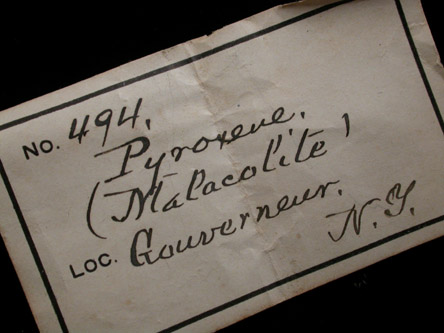 NO. 494.
Pyroxene.
(Malacolite)
LOC. Gouverneur.
N.Y.